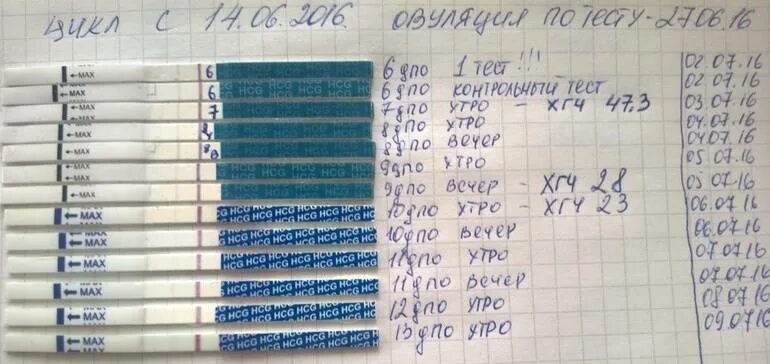 ЦИКЛ С 14.06.2016. ОВУЛЯЦИЯ ПО ТЕСТУ - 27.06.16
MAX 6 HCG HCG HCG 6 ДПО 1 ТЕСТ!!! 02.07.16
MAX 6 HCG HCG HCG HCG 6 ДПО КОНТРОЛЬНЫЙ ТЕСТ 02.07.16
MAX 7 7 ДПО УТРО - ХГЧ 47.3 03.07.16
MAX 8 ДПО УТРО 04.07.16
MAX 8В 8 ДПО ВЕЧЕР 04.07.16
MAX HCG HCG HCG HCG 9 ДПО УТРО 05.07.16
MAX 9 ДПО ВЕЧЕР - ХГЧ 28 05.07.16
MAX HCG HCG HCG HCG HCG 10 ДПО УТРО - ХГЧ 23 06.07.16
MAX HCG HCG HCG HCG HCG 10 ДПО ВЕЧЕР 06.07.16
MAX HCG HCG HCG HCG HCG 11 ДПО УТРО 07.07.16
MAX HCG HCG HCG HCG HCG 11 ДПО ВЕЧЕР 07.07.16
MAX HCG HCG HCG HCG HCG 12 ДПО УТРО 08.07.16
MAX HCG HCG HCG HCG HCG 13 ДПО УТРО 09.07.16